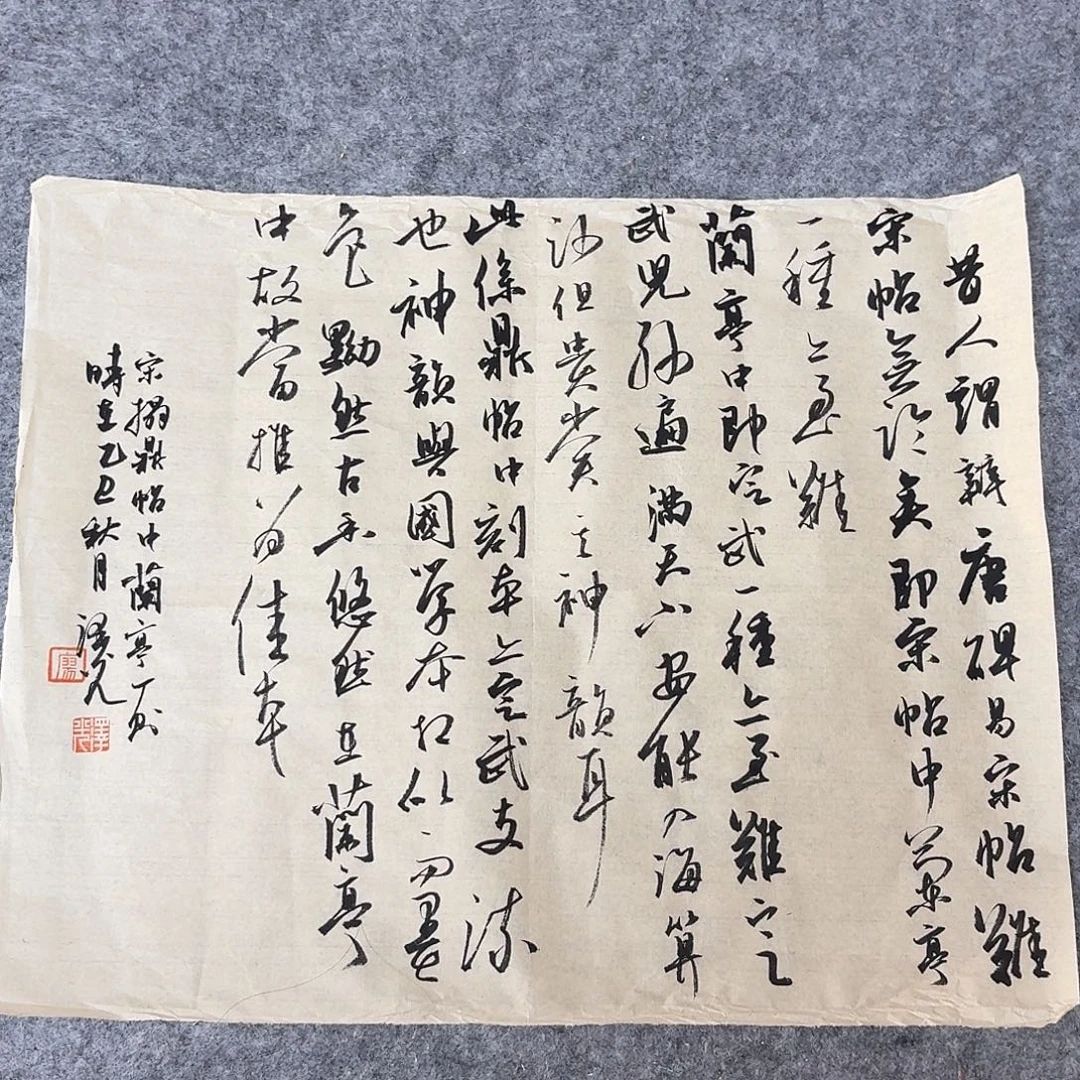 昔人謂辨唐碑易宋帖難
宋帖無論矣即宋帖中蘭亭
一種亦至難
蘭亭中即定武一種亦至難定
武兒孫遍滿天下安能入海算
沙但貴賞其神韻耳
此係鼎帖中刻本亦定武支流
也神韻與國學本相似而墨
色黝然古香悠然在蘭亭
中故當推為佳本
宋搨鼎帖中蘭亭一則
時在乙巳秋月澤光